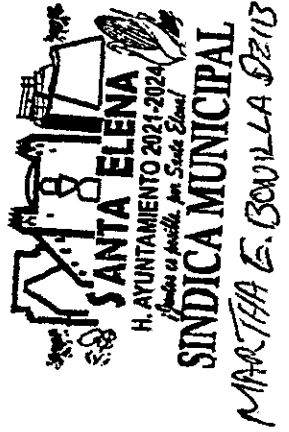 SANTA ELENA
H. AYUNTAMIENTO 2021-2024
¡Juntos es posible, por Santa Elena!
SINDICA MUNICIPAL
MARTHA E. BONILLA DZIB